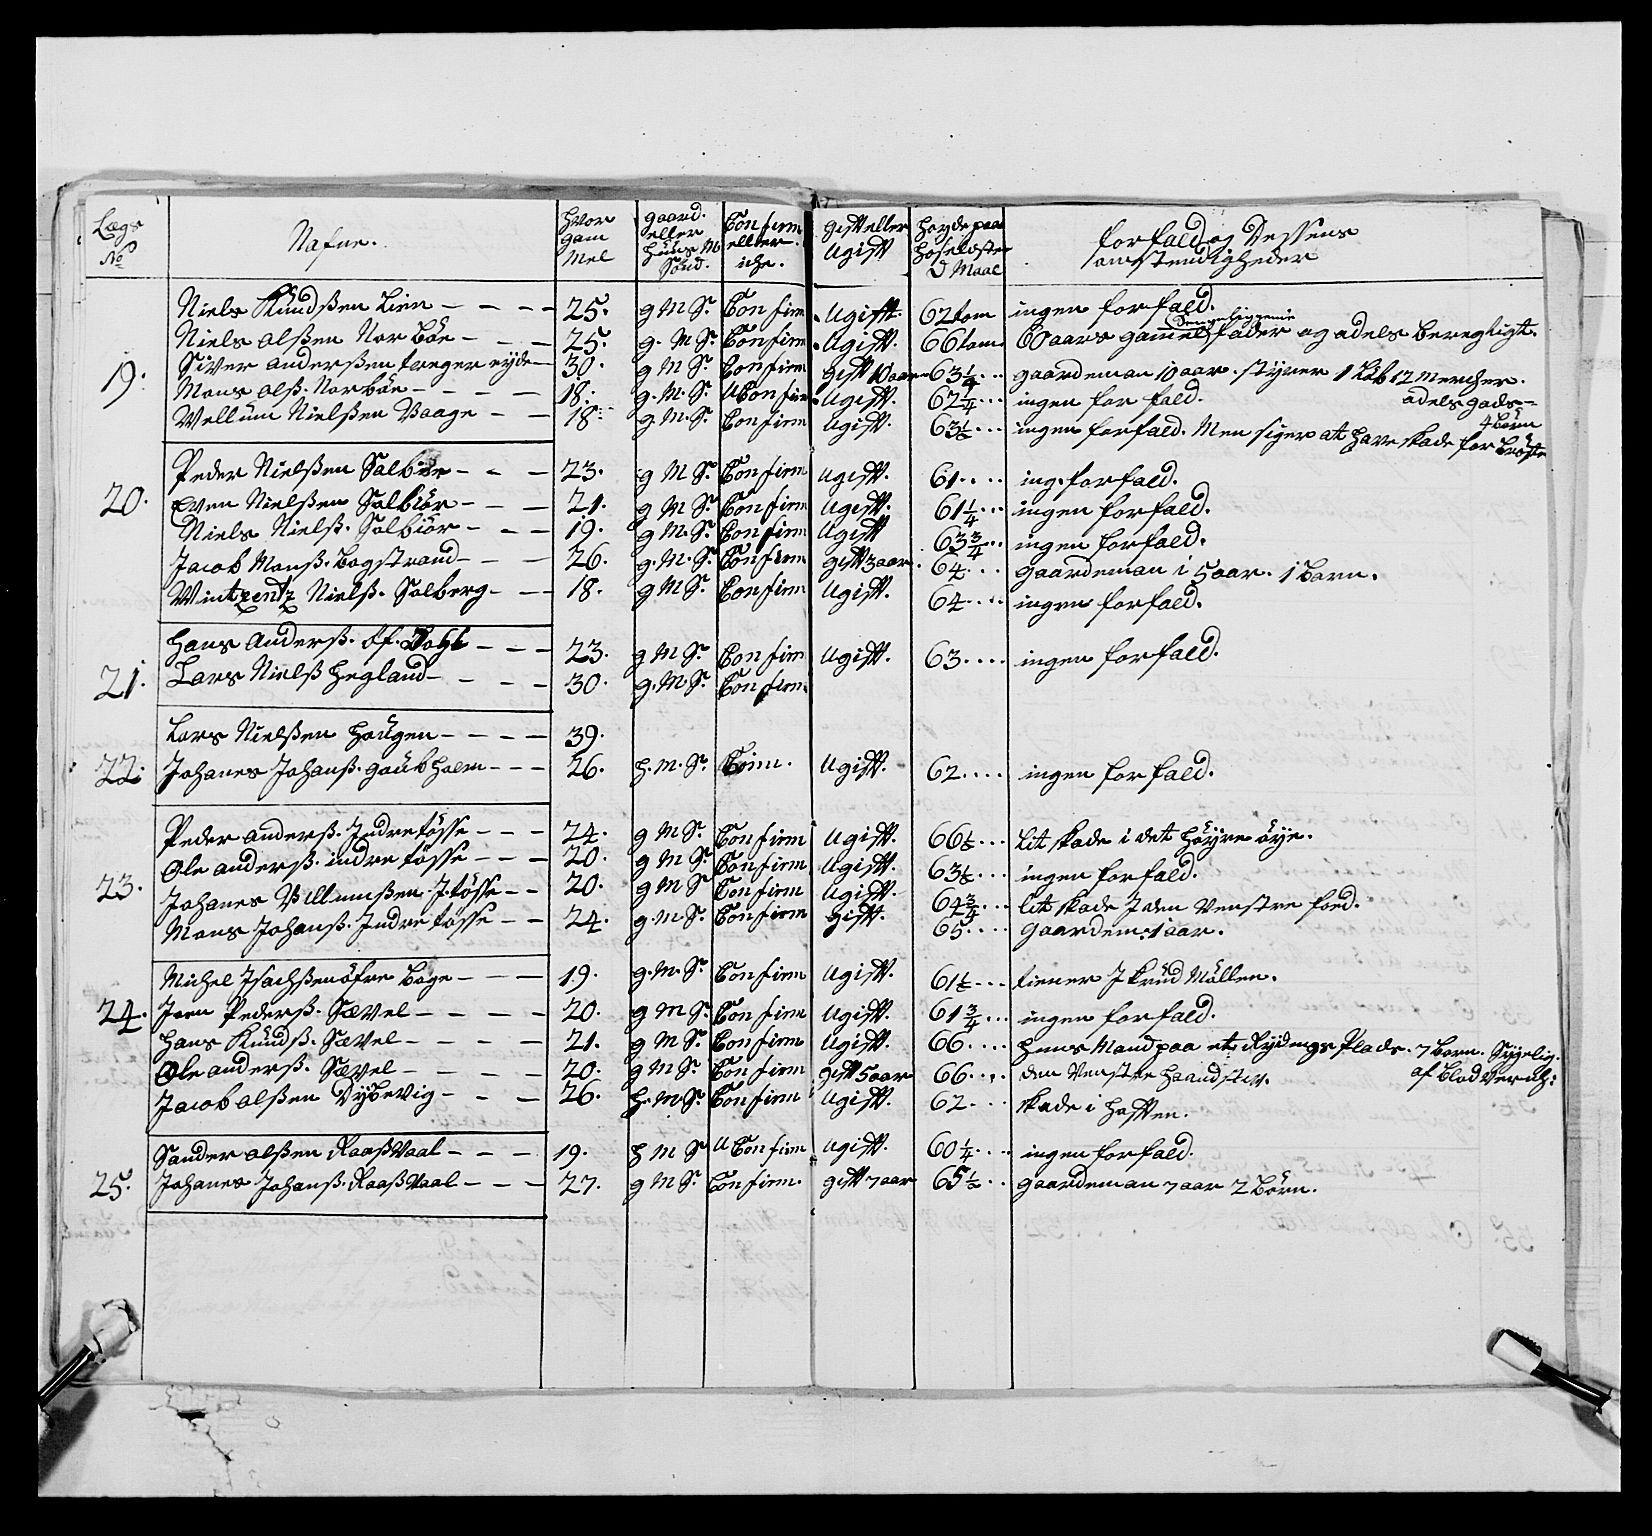 Lægs No | Nafne. | hvor gam mel | gaard. eller Huus M Sønd. | Confirm eller iche. | gift eller Ugift | høyde paa hoseløster Maal | forfald og Dessens omstendigheder
Niels Knudßen Lien - - - - 25. g M S. Confirm Ugift. 62 tom ingen forfald.
Niels olßen Norböe - - - 25. g. M S. Confirm Ugift. 66 tom. 60 aars gammel fader og adels beregtigt.
19. Siver anderßen - 30. g M S. Confirm gift 10 aar 63 1/4 ... gaardeman 10 aar. styrer 1 Løb 12 mercher.
adels gods - 4 börn
Mons olß. Norböe - - - - 18. g. M. S. UConfirm Ugift. 62 1/4 ... ingen forfald.
Vellum Nielßen Vaage - - - 18. g. M. S. Confirm Ugift. 63 1/2 ... ingen forfald. Men siger at have skade for bröste
Peder Nielßen Salbör - - - 23. g M S. Confirm Ugift. 61 .... ing. forfald.
20. Even Nielßen Salbiör - - - 21. g M S. Confirm Ugift. 61 1/4 ... ingen forfald.
Niels Nielß. Salbiör - - - 19. g M. S. Confirm Ugift 63 3/4 ... ingen forfald.
Jacob Monß. Bogstrand - - - 26. g. M. S. Confirm gift 3 aar. 64 ... gaardeman i 5 aar. 1 barn.
Wintzentz Nielß. Solberg - - - 18. g M S. Confirm Ugift. 64 .... ingen forfald.
Hans Anderß. öf. - - - 23. g M S. Confirm Ugift. 63 .... ingen forfald.
21. Lars Nielß Hegland - - - - 30. g. M. S. Confirm.
Lars Nielßen Haügen - - - - 39.
22. Johanes Johanß. gaübholm - - - 26. H. M. S. Ugift. 62 .... ingen forfald.
Peder anderß. Indretösse - - - 24. g M S. Confirm Ugift. 66 1/2 ... Lit skade i det höyre öye.
Ole anderß. indre tösse - - - 20. g M S. Confirm Ugift. 63 1/2 ... ingen forfald.
23. Johanes Villumßen. J tösse - - 20. g M S Confirm Ugift. 64 3/4 ... lit skade J den Venstre foed.
Mons Johanß. Indre tösse - - 24. g. M. S. Confirm gift. 65 .... gaardem. 1 aar.
Michel Isachßen öfre Boge - - - 19. g. M. S. Confirm Ugift. 61 1/2 ... tiener J krud Möllen.
24. Jven Pederß. Sævel - - - - 20. g M S. Confirm Ugift. 61 3/4 ... ingen forfald.
Hans Knüdß. Sævel - - - - 21. g M S. Confirm Ugift. 66 .... Huus Mand paa et Rydnings Plads. 7 Born. Sygelig.
af blod
Ole anderß. Sævel - - - - 20. g M S. Confirm gift 5 aar 66 .... den Venstre haand stiv.
Jacob olßen Dybevig - - - 26. H. M. S. Confirm Ugift. 62 ... skade i hoften.
Sander olßen Raaßvaal - - - 19. H M S. U Confirm Ugift. 60 1/4 ... ingen forfald.
25. Johanes Johanß. Raaßvaal - - - 27. g M S. Confirm. gift 7 aar 65 1/2 ... gaardeman 7 aar 2 Börn.